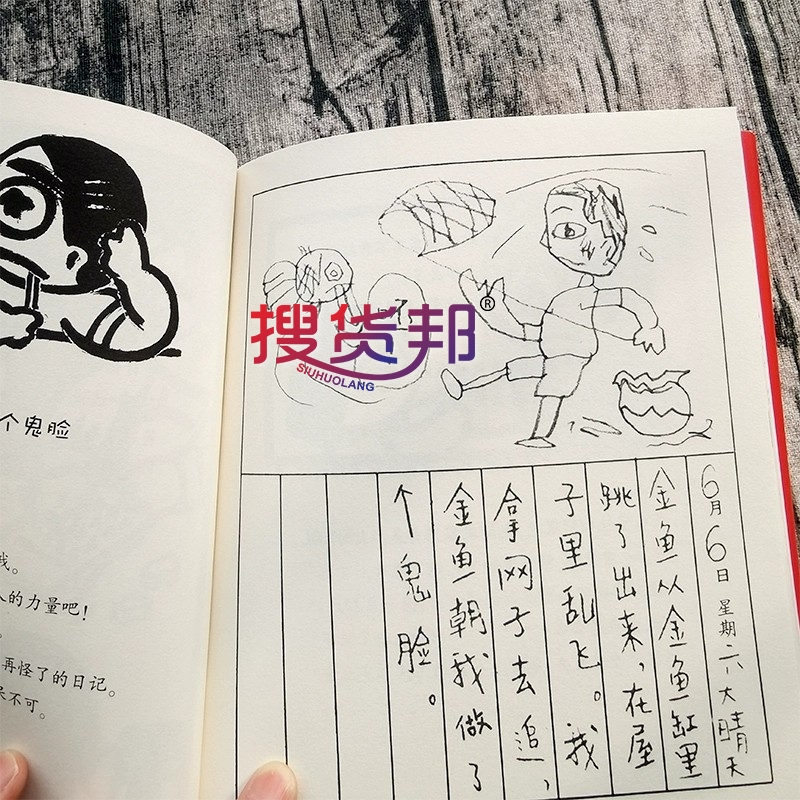 个鬼脸
我。
人的力量吧！
再怪了的日记。
不可。
搜货邦®
SIUHUOLANG
6月6日 星期六，大晴天
金鱼从金鱼缸里
跳了出来，在屋
子里乱飞。我
拿网子去追，
金鱼朝我做了
个鬼脸。